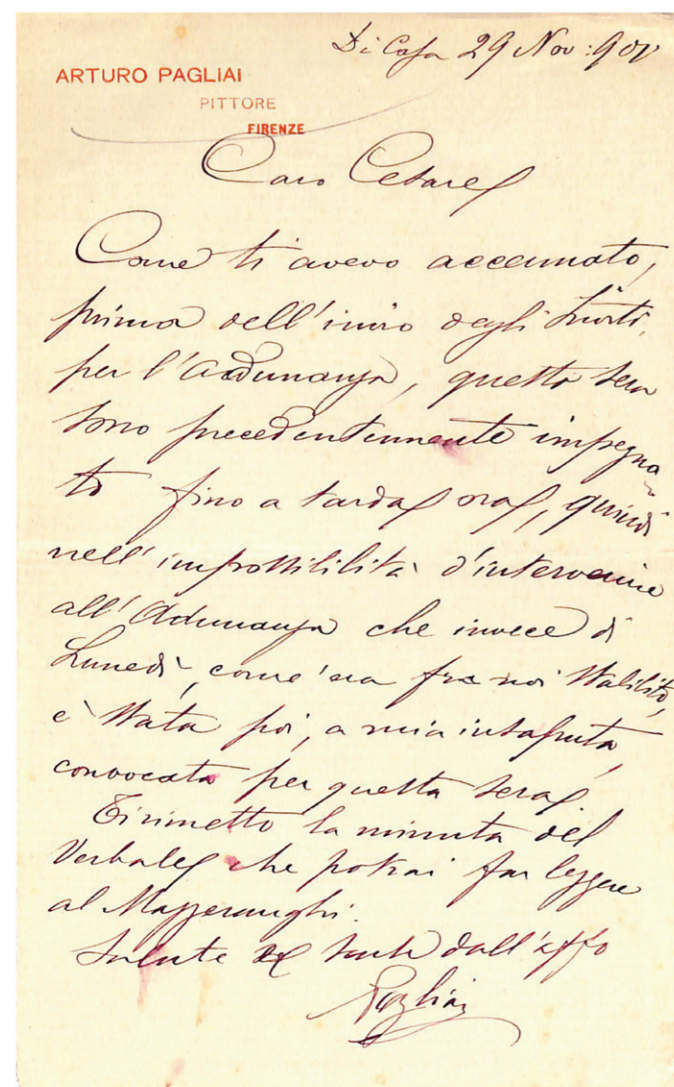 Di Casa 29 Nov: 90
ARTURO PAGLIAI
PITTORE
FIRENZE
Caro Cesare
Come ti avevo accennato,
prima dell'invio degli Inviti,
per l'Adunanza, questa sera
sono precedentemente impegna-
to fino a tarda ora, quindi
nell'impossibilità d'intervenire
all'Adunanza che invece di
Lunedì, come era fra noi stabilito,
è stata poi, a mia insaputa,
convocata per questa sera.
Ti rimetto la minuta del
Verbale che potrai far leggere
al Mazzeranghi.
Salute dall'affo
Pagliai